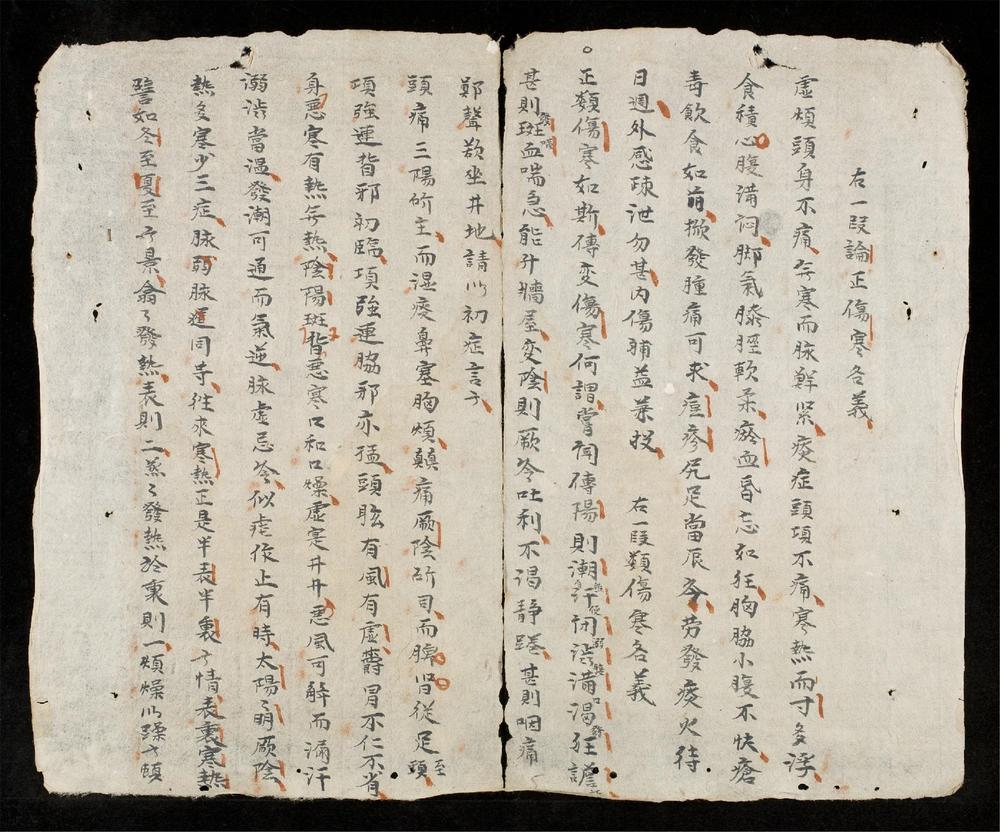 右一段論正傷寒各義
虛煩頭身不痛无寒而脉鮮紧痰症頭項不痛寒熱而寸多浮
食積心腹满悶脚氣膝脛軟柔瘀血昏忘如狂胸脇小腹不快瘡
毒飲食如前掀發腫痛可求痘疹尻足當辰冷劳發痰火待
日週外感疎泄勿甚内傷補益兼投 右一段類傷寒各義
正類傷寒如斯傳変傷寒何謂嘗闻傳陽則潮汗闭澁满渴狂譫
甚則斑血喘急能升墻屋変陰則厥冷吐利不渴静踡甚則咽痛
鄭聲欲坐井地請以初症言之
頭痛三陽所主而湿痰鼻塞胸煩巔痛厥陰所司而脾腎從足至頭
項強連背邪初臨項強連脇邪亦猛頭眩有風有虛欝冒不仁不省
身悪寒有熱无熱陰陽斑背悪寒口和口燥虛寔井井悪風可解而漏汗
溺澁當温發潮可通而氣逆脉虛忌冷似瘧作止有時太陽陽明厥陰
熱多寒少三症脉弱脉遲同寺往來寒熱正是半表半裏之情表裏寒熱
譬如冬至夏至之景翕々發熱表則二蒸々發熱於裏則一煩燥以躁之頗